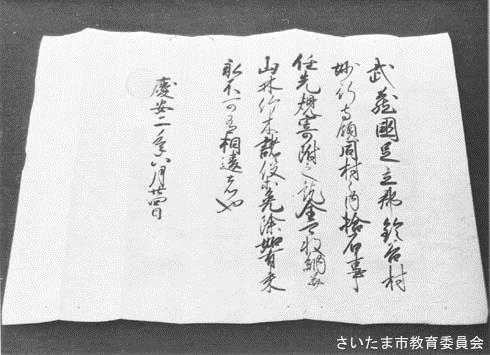 武蔵國足立郡鈴谷村
妙行寺領同村之内拾石事
任先規寄附之訖全可収納并
山林竹木諸役等免除如有来
永不可有相違者也
慶安二年八月廿四日
さいたま市教育委員会